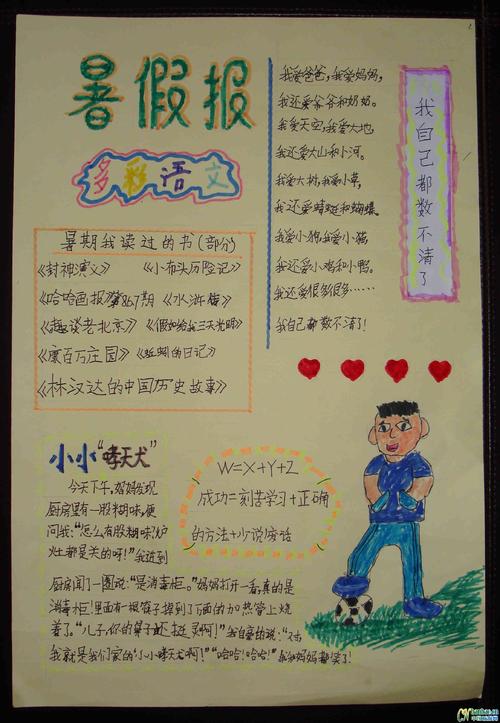 暑假报
多彩语文
暑期我读过的书(部分)
《封神演义》 《小布头历险记》
《哈哈画报》第867期 《水浒传》
《趣谈老北京》 《假如给我三天光明》
《康百万庄园》 《蚯蚓的日记》
《林汉达的中国历史故事》
我自己都数不清了
我爱爸爸,我爱妈妈,
我还爱爷爷和奶奶。
我爱天空,我爱大地,
我还爱大山和小河。
我爱大树,我爱小草,
我还爱蜻蜓和蝴蝶。
我爱小狗,我爱小猫
我还爱小鸡和小鸭。
我还爱很多很多……
我自己都数不清了!
小小“哮天犬”
今天下午,妈妈发现
厨房里有一股糊味,便
问我:“怎么有股糊味?炉
灶都是关的呀!”我跑到
厨房闻了一圈说:“是消毒柜。”妈妈打开一看,真的是
消毒柜!里面有一根筷子掉到了下面的加热管上烧
着了。“儿子,你的鼻子还挺灵啊!”我自豪的说:“
我就是我们家的‘小小哮天犬’啊!”“哈哈!哈哈!”我和妈妈都笑了!
W=X+Y+Z
成功=刻苦学习+正确
的方法+少说废话